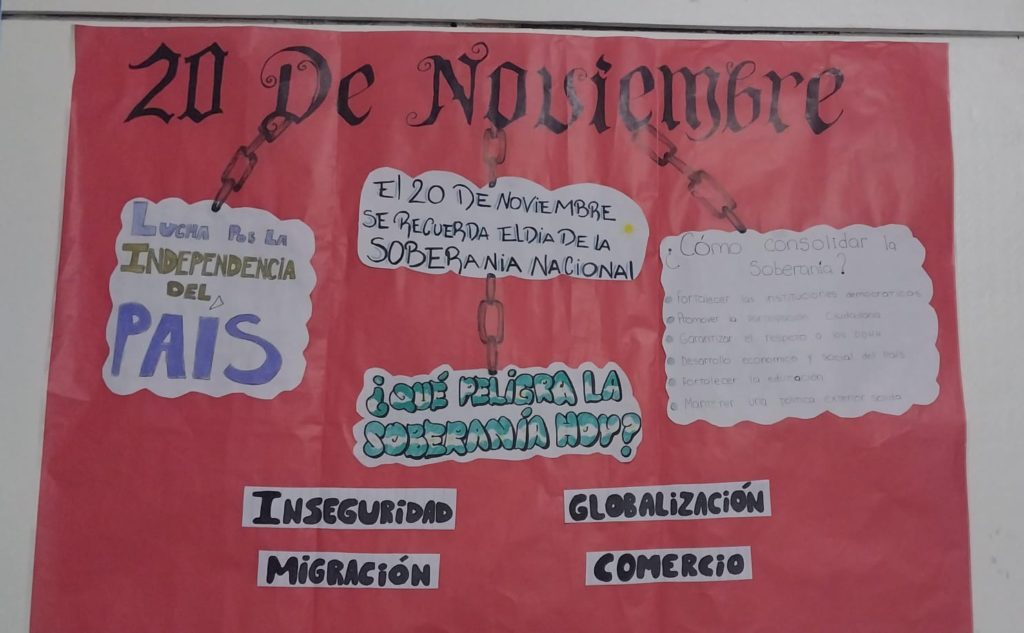 20 De Noviembre
Lucha Por la
Independencia
del
País
El 20 de Noviembre
se recuerda el día de la
Soberania Nacional
¿Qué peligra la
soberanía hoy?
¿Cómo consolidar la
Soberanía?
Fortalecer las instituciones democráticas
Promover la participación ciudadana
Garantizar el respeto a los DDHH
Desarrollo económico y social del País
Fortalecer la educación
Mantener una política exterior sólida
Inseguridad
Globalización
Migración
Comercio